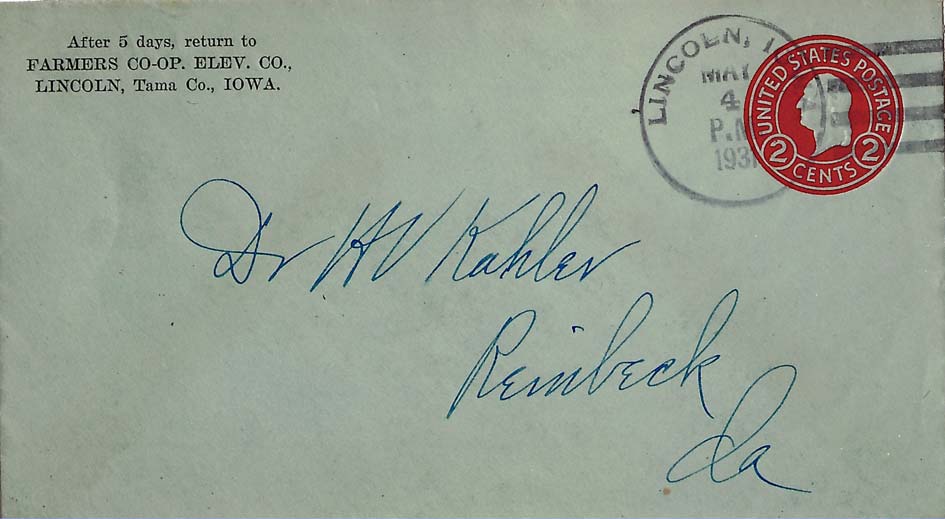 After 5 days, return to
FARMERS CO-OP. ELEV. CO.,
LINCOLN, Tama Co., IOWA.
LINCOLN, I
MAY
4
P.M
1931
UNITED STATES POSTAGE
2 CENTS 2
Dr HV Kahler
Reinbeck
Ia